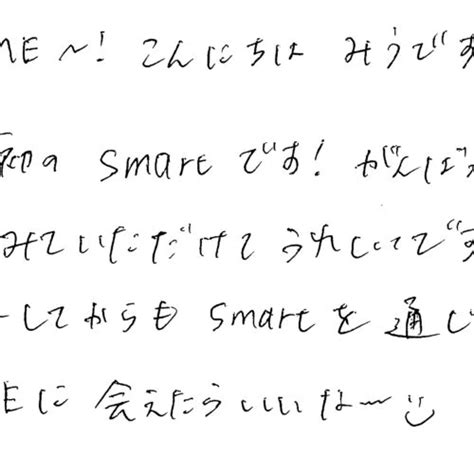 ME〜! こんにちは みうです
初の smart です! がんばっ
みていただけて うれしいです
ーしてからも smartを 通じ
Eに 会えたらいいな〜